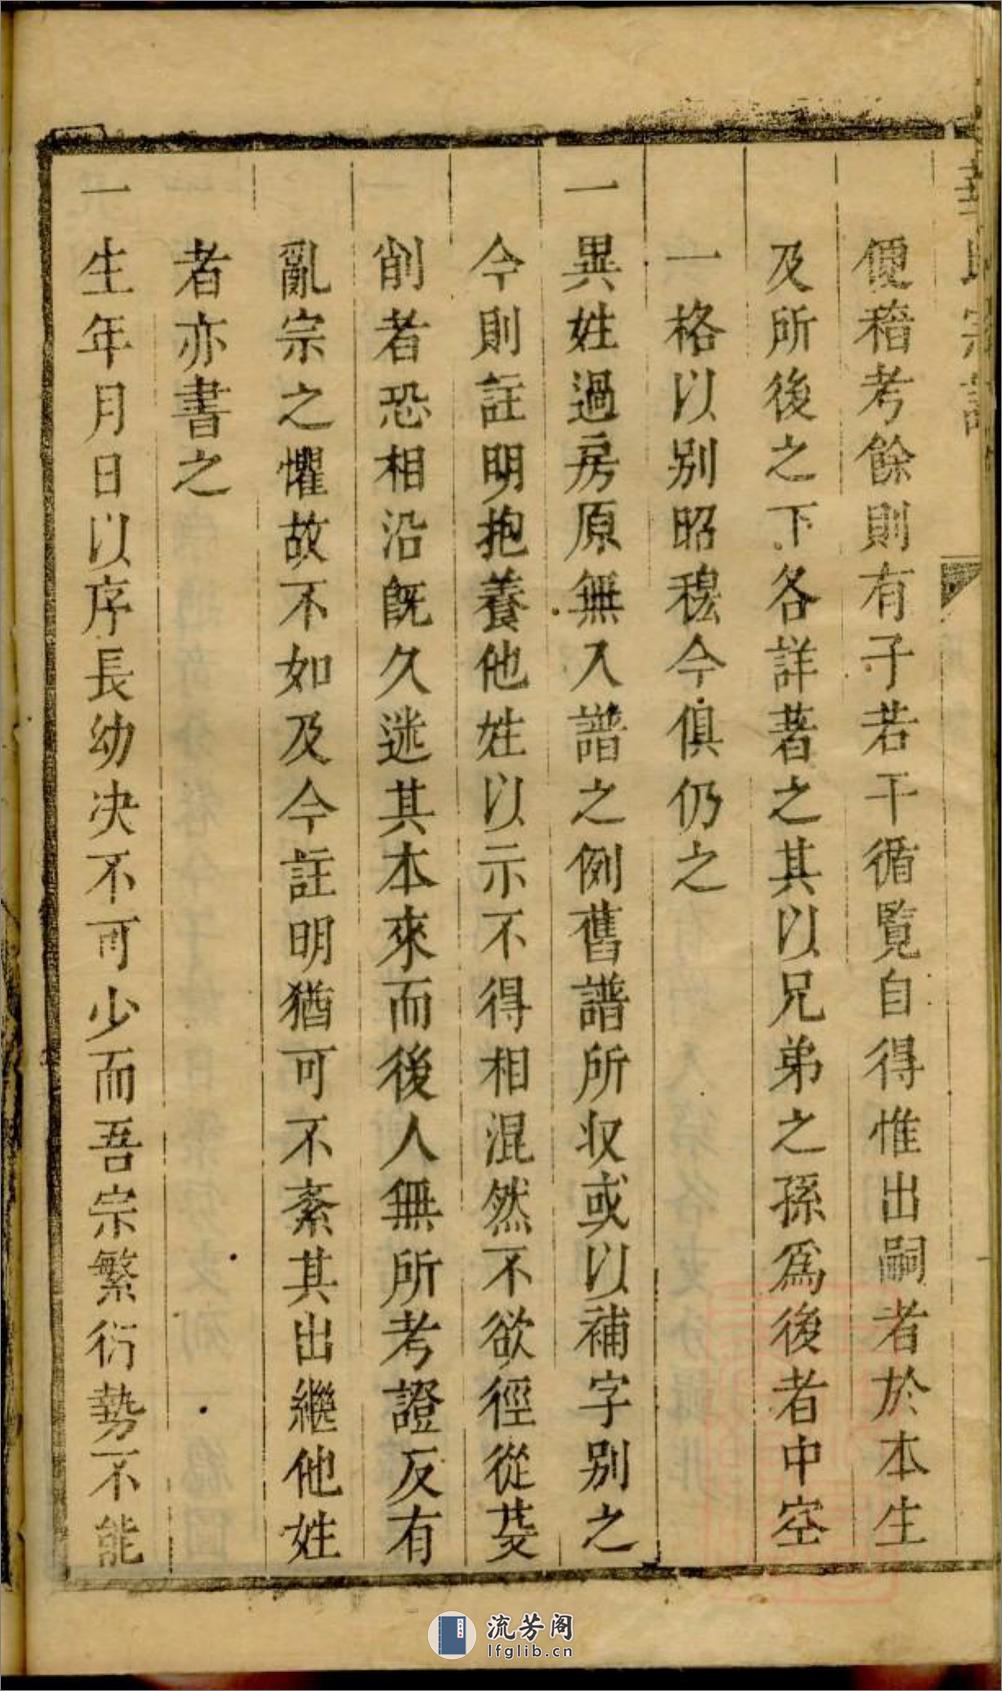 華氏宗譜
便稽考餘則有子若干循覽自得惟出嗣者於本生
及所後之下各詳著之其以兄弟之孫爲後者中空
一格以別昭穆今俱仍之
一異姓過房原無入譜之例舊譜所収或以補字別之
今則註明抱養他姓以示不得相混然不欲徑從芟
削者恐相沿旣久迷其本來而後人無所考證反有
亂宗之懼故不如及今註明猶可不紊其出繼他姓
者亦書之
一生年月日以序長幼决不可少而吾宗繁衍勢不能
流芳阁
lfglib.cn